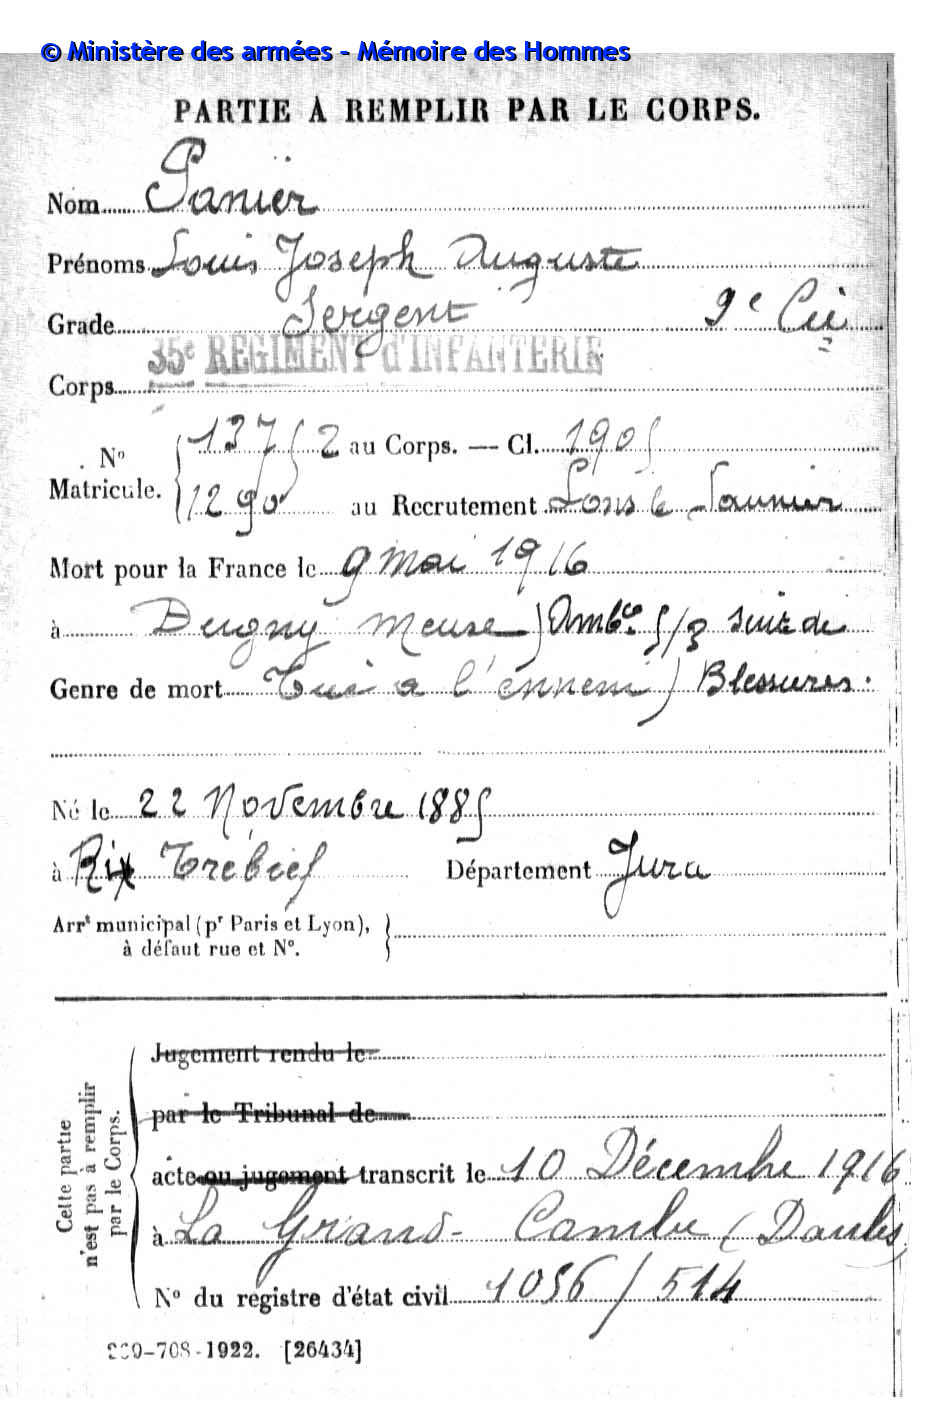 © Ministère des armées - Mémoire des Hommes
PARTIE À REMPLIR PAR LE CORPS.
Nom Panier
Prénoms Louis Joseph Auguste
Grade Sergent 9e Cie
35e REGIMENT d'INFANTERIE
Corps
N° Matricule. { 13752 au Corps. — Cl. 1905
1290 au Recrutement Lons le Saunier
Mort pour la France le 9 mai 1916
à Dugny Meuse) Ambce 5/3 suite de
Genre de mort Tué à l'ennemi) Blessures.
Né le 22 Novembre 1885
à Rix Trébief Département Jura
Arrt municipal (pr Paris et Lyon),
à défaut rue et N°.
Cette partie
n'est pas à remplir
par le Corps.
Jugement rendu le
par le Tribunal de
acte ou jugement transcrit le 10 Décembre 1916
à La Grand-Combe (Doubs
N° du registre d'état civil 1056/514
-708-1922. [26434]